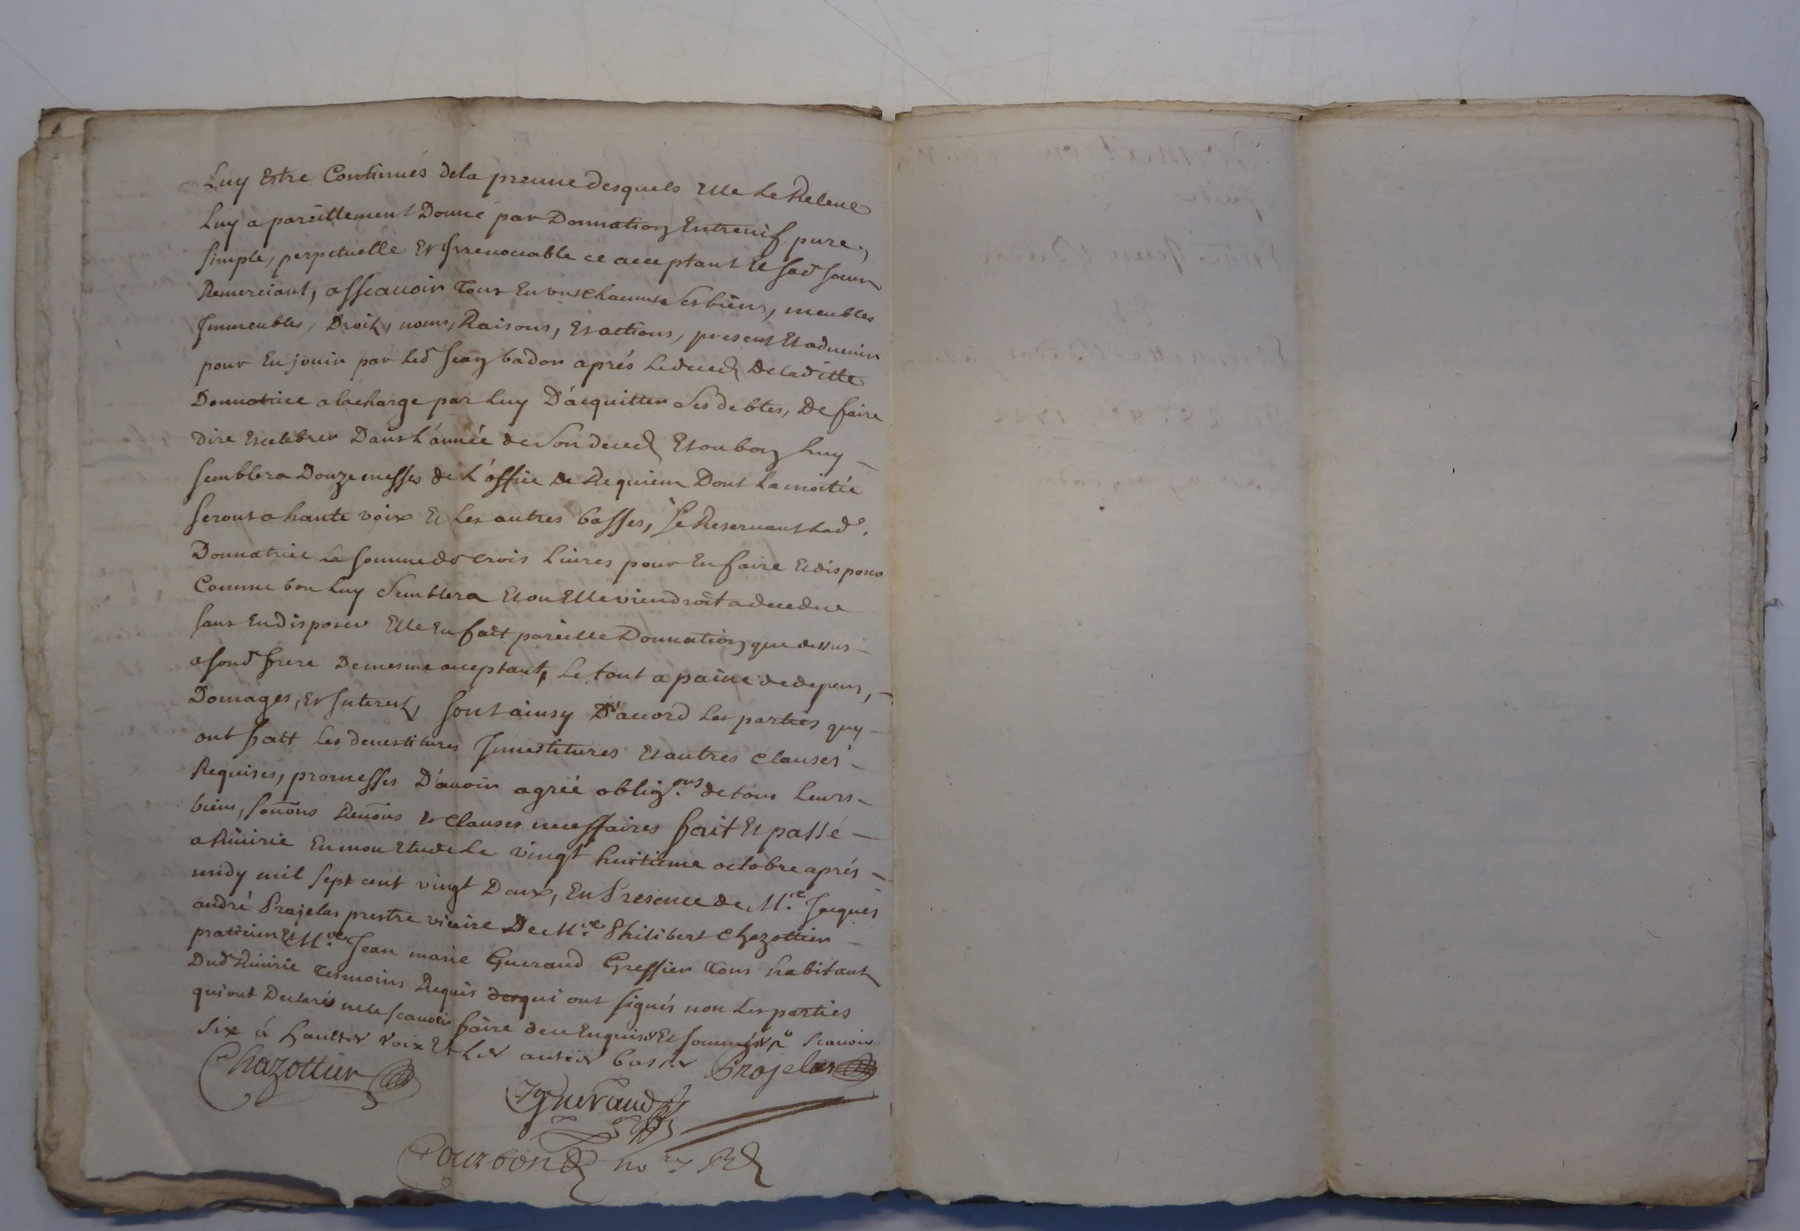 Luy Estre Continués dela preuue desquels Elle Le Releue
Luy a pareillement Donné par Donnation Entreuif pure,
simple, perpetuelle Et Irreuocable ce acceptant Et sad soeur
Remerciant, asscauoir Tous En vns chacuns ses biens, meubles
Immeubles, Droits, noms, Raisons, Et actions, present Et aduenir
pour En jouir par Led Jean badon aprés Le deced De laditte
Donnatrice a lacharge par Luy D'acquitter ses debtes, De faire
Dire Et celebrer Dans L'année de son deced Et ou bon Luy
semblera Douze messes de L'office de Requiem Dont La moitié
seront a haute voix Et Les autres basses, se Reseruant Lad.
Donnatrice La somme de trois Liures pour En faire Et disposer
Comme bon Luy semblera Et ou Elle viendroit a decedue
sans En disposer Elle En fait pareille Donnation que dessus
a sond frere De mesme acceptant, Le tout a paine de depens,
Domages, Et Interests, sont ainsy D'accord Les parties quy
ont fait Les deuestitures Inuestitures Et autres clauses
Requises, promesses D'auoir agréé oblig.ons de tous Leurs
biens, soûons Renôns Et Clauses necessaires fait Et passé
a Riuirie En mon Etude Le vingt huitieme octobre aprés
midy mil sept cent vingt Deux, En Presence de M.re Jacques
andré Prajelas prestre vicaire De M.re Philibert Chazottier
praticien Et M.re Jean marie Gueraud Greffier Tous habitant
Dud Riuirie Tesmoins Requis qui ont signés non Les parties
qui ont Declarés ne le scauoir faire de ce Enquises Et sommés p.o scauoir
six à haulte voix Et Les autres basses Prajelas
Chazottier
Gueraud
Courbon no.re R.